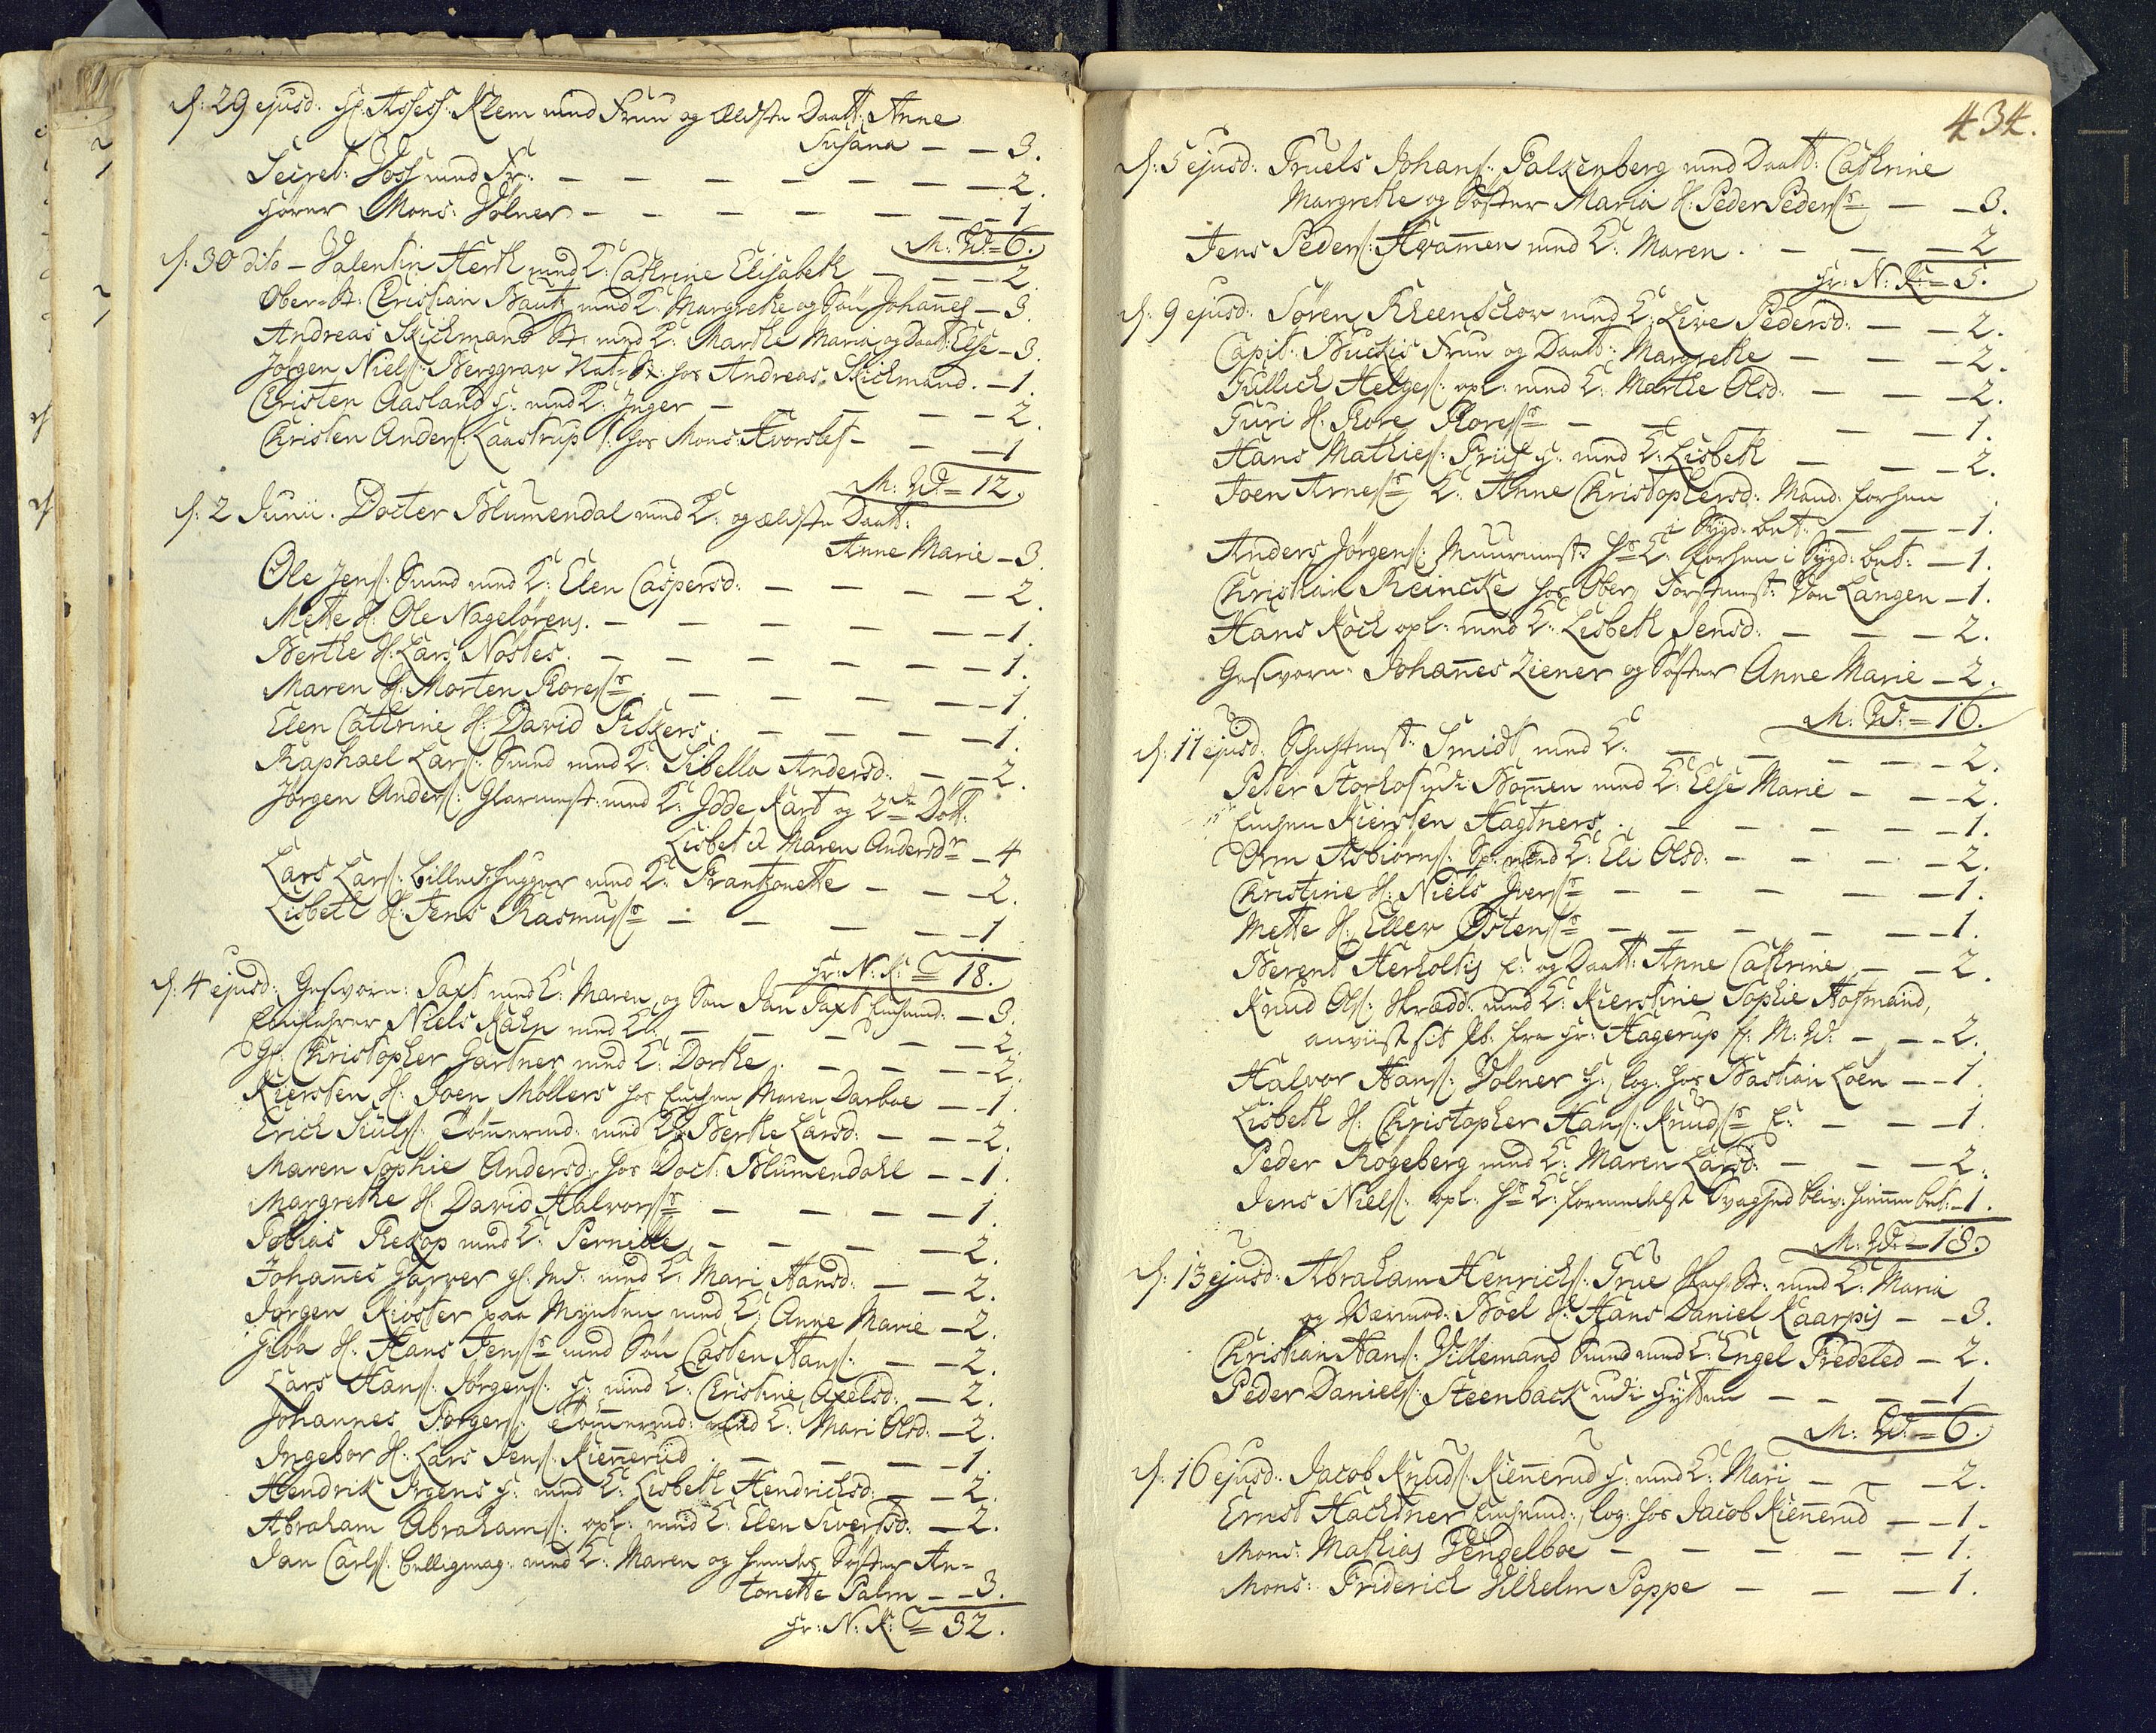 d: 29 ejusd. H: Assess: Klem med Frue og ældste Daatt: Anne
Susana — — 3.
Secret: Voss med Fr: — — — — — — — 2.
Hører Mons: Volner — — — — — — — 1
M: W: = 6.
d: 30 dito — Valentin Herth med K: Cathrine Elisabeth — — 2.
Ober-St: Christian Bautz med K: Margrethe og Søn Johanes — 3.
Andreas Skichmand St: med K: Marthe Maria og Daat: Else — 3.
Jørgen Niels: Berggrav Nat-St: hos Andreas Skichmand. — 1.
Christen Aasland H: med K: Inger — — — — — 2.
Christen Anders: Laastrup S: hos Mons: Avorslef — — — 1
M: W: = 12.
d: 2 Junii. Docter Blumendal med K: og ældste Daatt:
Anne Marie — 3.
Ole Jens: Smed med K: Elen Caspersd: — — — — 2.
Mette H: Ole Nagelørens. — — — — — — 1.
Berthe H: Lars Nostes. — — — — — — 1.
Maren H: Morten Roress: — — — — — 1.
Elen Cathrine H: David Fiskers. — — — — 1.
Raphael Lars: Smed med K: Sibella Andersd: — — 2.
Jørgen Anders: Glarmest: med K: Gode Kart og 2de Døtt:
Lisbet et Maren Andersdr — 4
Lars Lars: Billedhugger med K: Frantzonette — — 2.
Lisbeth H: Jens Rasmuss: — — — — — 1
Hr: N: K: = 18.
d: 4 ejusd: Gesvorn: Paxt med K: Maren og Søn Jan Paxt — 3.
Niels Kahn med K: — — — — — 2.
Gl: Christopher Gartner med K: Dorthe. — — — 2.
Kiersten H: Joen Møllers hos Maren Darboe — — 1.
Erich Siuls: Tømermd: med K: Berthe Larsd: — — 2.
Maren Sophie Andersd: hos Doct: Blumendahl — — 1.
Margrethe H: David Halvors: — — — — 1.
Tobias Rekop med K: Pernille — — — — 2.
Johanes Garver gl: Ind: med K: Mari Hansd: — — 2.
Jørgen Kiøster paa Mynten med K: Anne Marie — 2.
Giøa H: Hans Jenss: med Søn Casten Hans: — — 2.
Lars Hans: Jørgens: H: med K: Christine Axelsd: — 2.
Johannes Torgers: Tømermd: med K: Mari Olsd: — 2.
Ingebor H: Lars Jens: Kienerud. — — — — 1.
Hendrik Irgens H: med K: Lisbeth Hendrichsd: — — 2.
Abraham Abrahams: opl: med K: Elen Siversd: — 2.
Jan Carls: Belligmag: med K: Maren og hendes Søster An=
tonette Palm — — 3.
Hr: N: K: = 32.
434.
d: 5 ejusd: Truels Johans: Falkenberg med Daatt: Cathrine
Margrethe og Søster Maria H: Peder Peders: — — 3.
Jens Peders: Hvamen med K: Maren. — — — 2
Hr: N: K: = 5.
d: 9 ejusd: Søren Rheenschov med K: Live Pedersd: — — 2.
Capit: Buckis Frue og Daatt: Margrethe — — — 2.
Tullich Helges: opl: med K: Marthe Olsd: — — — 2.
Turi H: Tore Tores: — — — — — 1.
Hans Mathies: Priis H: med K: Lisbeth — — — 2.
Joen Arness: K: Anne Christophersd: Mand: forhen
i Sygd: bet: — — — 1.
Anders Jørgens: Muurmest: Hs K: forhen i Sygd: bet: — 1.
Christian Reincke hos Ober Forstmest: Von Langen — 1.
Hans Koch opl: med K: Lisbeth Jensd: — — — 2.
Gesvorn: Johanes Ziener og Søster Anne Marie — 2.
M: W: = 16.
d: 11 ejusd: Smidt med K: — — — — 2.
Peter Storhof ved Bomen med K: Else Marie — — 2.
Kiersten Hagtners. — — — — — 1.
Orm Asbiørns: Sp: med K: Eli Olsd: — — — 2.
Christine H: Niels Ivers: — — — — — 1.
Mette H: Eller Østens: — — — — — 1.
Berent Herholtis E: og Daatt: Anne Cathrine — — 2.
Knud Ols: Skrædd: med K: Kierstine Sophie Hofmand,
anviist sit Pl: fra Hr: Hagerup til M: W: — — 2.
Halvor Hans: Volner H: log: hos Bastian Loen — — 1.
Lisbeth H: Christopher Hans: Knuds: E: — — — 1.
Peder Rogeberg med K: Maren Larsd: — — — 2.
Jens Niels: opl: Hs K: formedelst Svaghed bliv: hieme bet: — 1.
M: W: = 18.
d: 13 ejusd: Abraham Henrichs: Grue St: med K: Maria
og Værmod: Boel H: Hans Daniel Kaarpis — — 3.
Christian Hans: Villemand Smed med K: Engel Fredeled — 2.
Peder Daniels: Steenback ved Hytten — — — — 1
M: W: = 6.
d: 16 ejusd: Jacob Knuds: Kienerud H: med K: Mari — — — 2.
Ernst Hachtner log: hos Jacob Kienerud — — 1.
Mons: Mathias Pendelboe — — — — — 1.
Mons: Friderich Vilhelm Poppe — — — 1.